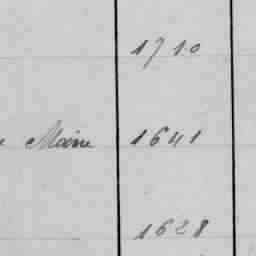 1710
Maine 1641
1628